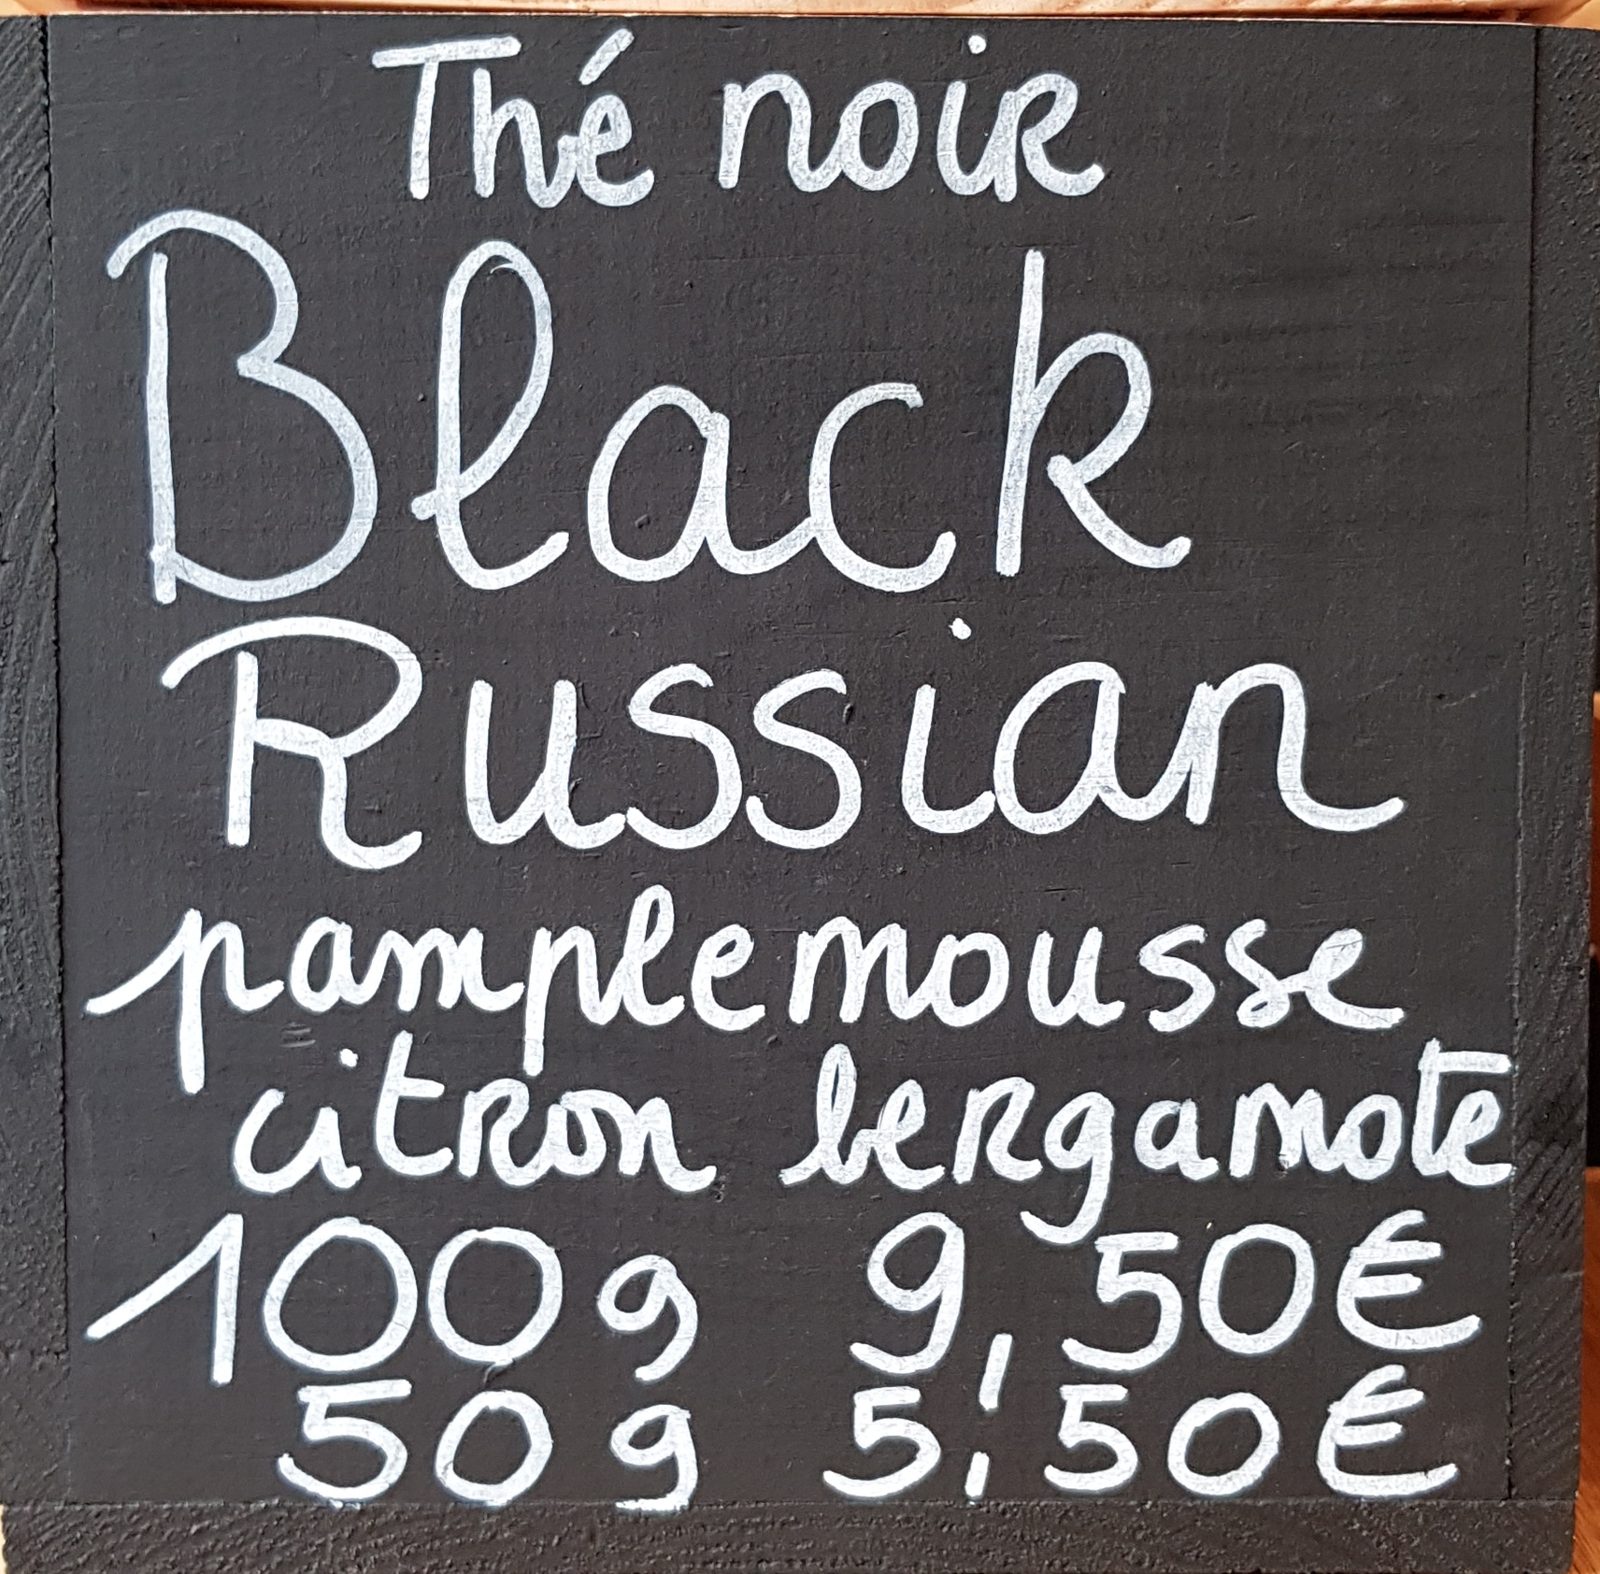 Thé noir
Black
Russian
pamplemousse
citron bergamote
100g 9,50€
50g 5,50€